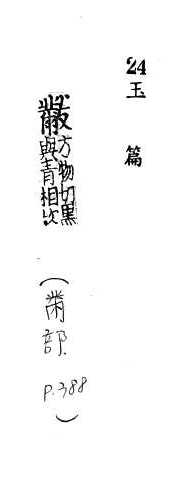 24 玉篇
黻 方物切黑
與青相次
(黹部 P.388)